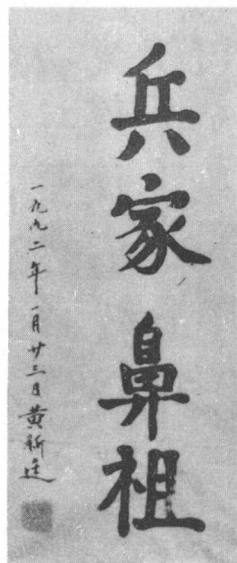 兵家鼻祖
一九九二年一月廿三日黄新廷